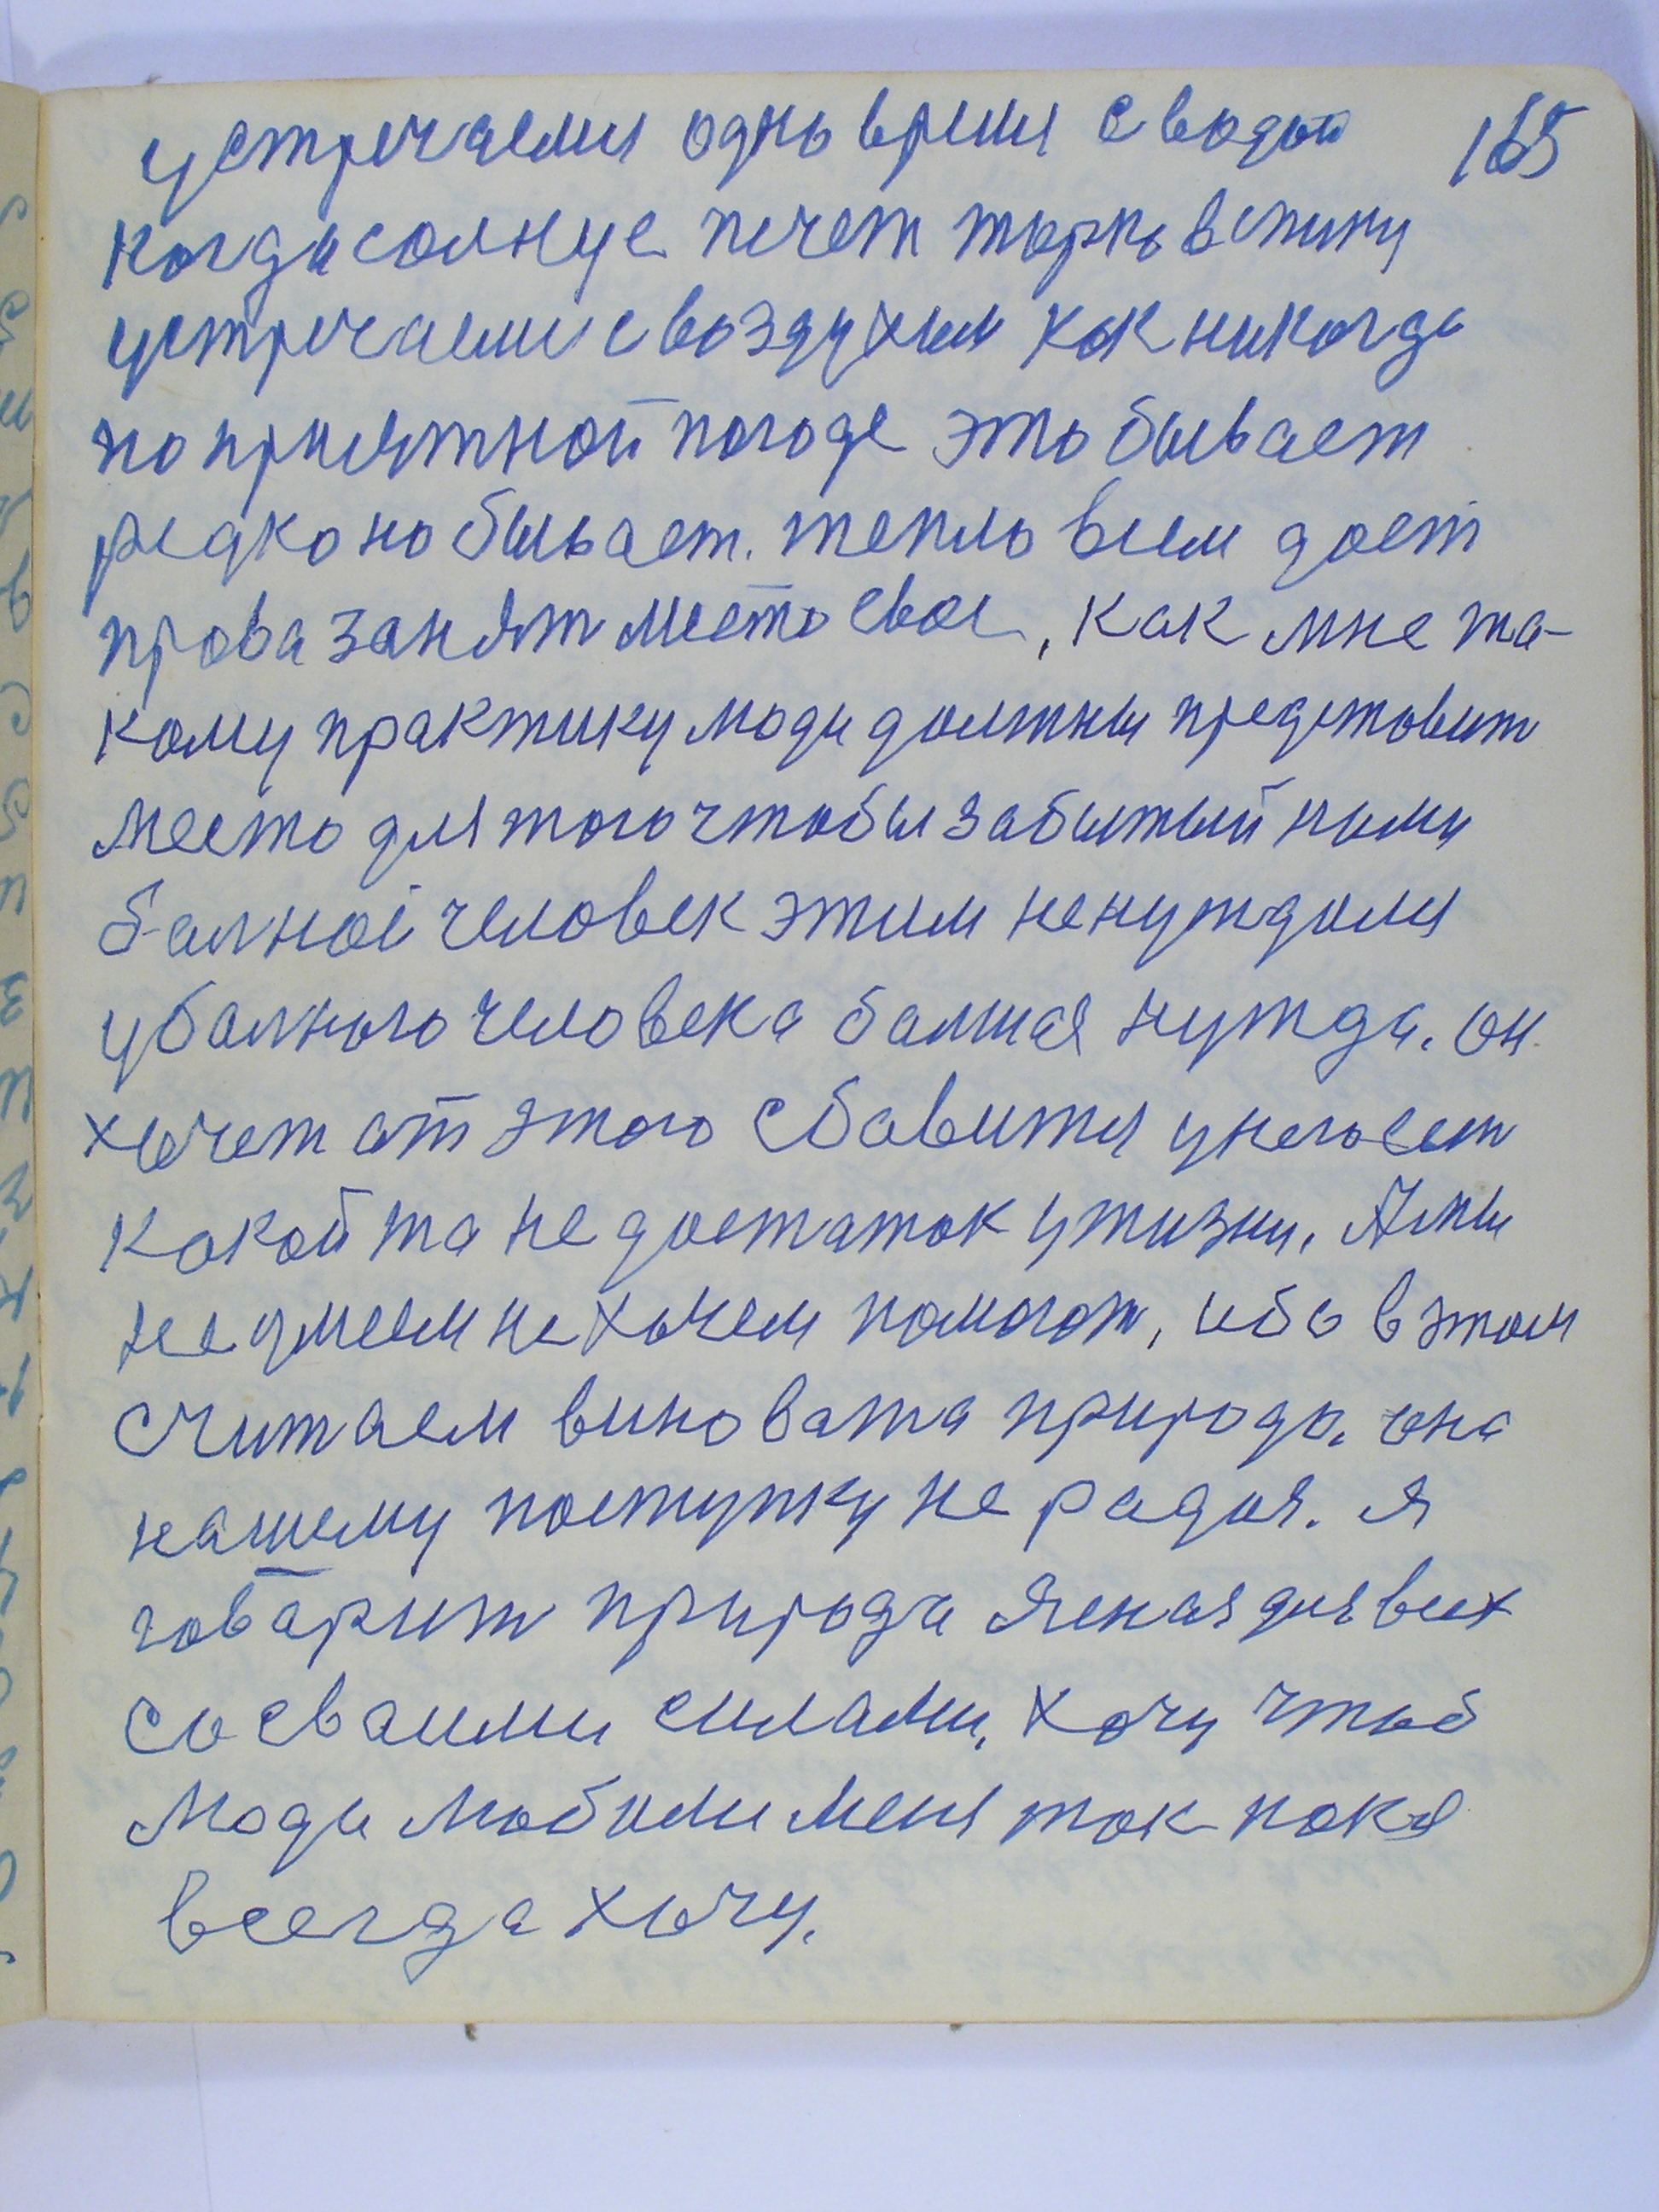 устречаемся одно время с водой 165
когда солнце печет тырпь в спину
устречаемся с воздухом как никогда
по приятной погоде это бывает
редко но бывает. тепло всем дает
права занят место свое, как мне та-
кому практику люди должны представит
место для того чтобы забытый нами
балной человек этим не нуждался
у балного человека балшая нужда. он
хочет от этого сбавится у него ест
какой та не достаток у жизни. А мы
не умеем не хочем помогат, ибо в этом
считаем виновата природа. она
нашему поступку не радая. я
говарит природа ясная для всех
со сваими силами, хочу чтоб
люди любили меня так как я
всегда хочу.